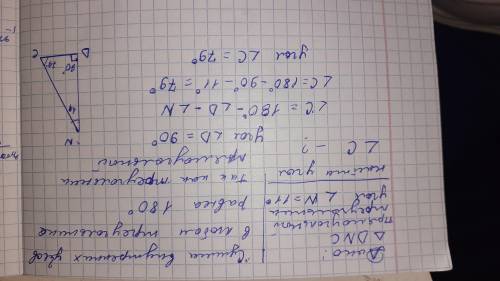 Дано:
△ DNC
прямоугольный
треугольник
угол ∠N = 11°
найти угол
∠C - ?
Сумма внутренних углов
в любом треугольнике
равна 180°
Так как треугольник
прямоугольный
угол ∠D = 90°
∠C = 180° - ∠D - ∠N
∠C = 180° - 90° - 11° = 79°
угол ∠C = 79°
N
90°
D
C